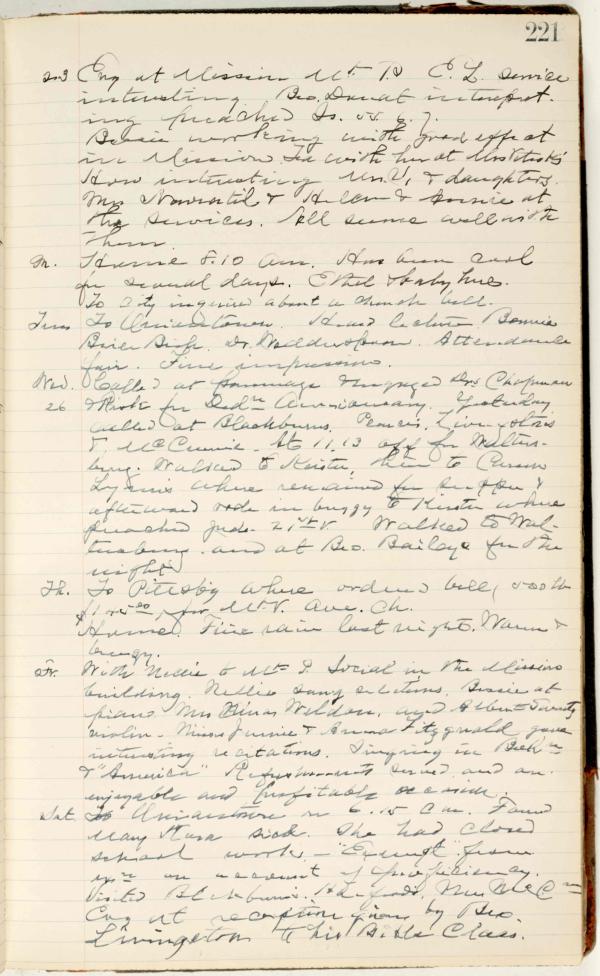 221
Evg at Mission Mt. P. C. L. service
interesting. Bro. Donat interpret-
ing preached Is. 55. 6. 7.
Bessie working with good effect
in Mission. Tea with her at Mrs
How interesting Mrs V, & daughters.
Mrs Navratil & Helen & Annie at
the services. All seems well with
them.
M. Home 8.10 am. Has been cool
for several days. Ethel & baby here.
To City inquired about a church bell.
Tues To Uniontown. Heard lecture Bonnie
Brier Bush. Dr. Watterspoon. Attendance
fair. Fine impression.
Wed. Called at parsonage & engaged Drs Chapman
26 & for Dedn Anniversary. Yesterday
called at Blackburns, Pences, Livingstons
& McCunes. At 11.13 off for Walters-
burg. Walked to Keister, then to Cousin
where remained for supper &
afterward rode in buggy to Keister where
preached Jud. 21st V. Walked to Wal-
tersburg and at Bro. Baileys for the
night.
Th. To Pittsbg where ordered bell, 500 lb
for Mt. V. Ave. Ch.
Home. Fine rain last night. Warm &
breezy.
Fr. With Nellie to Mt P. Social in the Mission
building. Nellie sang selections. Bessie at
piano Mrs Weldon, and Albert
violin. Misses Jennie & Anna Fitzgerald gave
interesting recitations. Singing in Bohn
& "America" Refreshments served and an
enjoyable and profitable occasion.
Sat. To Uniontown on 6.15 car. Found
Mary Kara sick. She had closed
school work - "Exempt" from
exn on account of proficiency.
Visited Blackburns. Mrs McCn
Evg at reception given by Bro.
Livingston to his Bible Class.